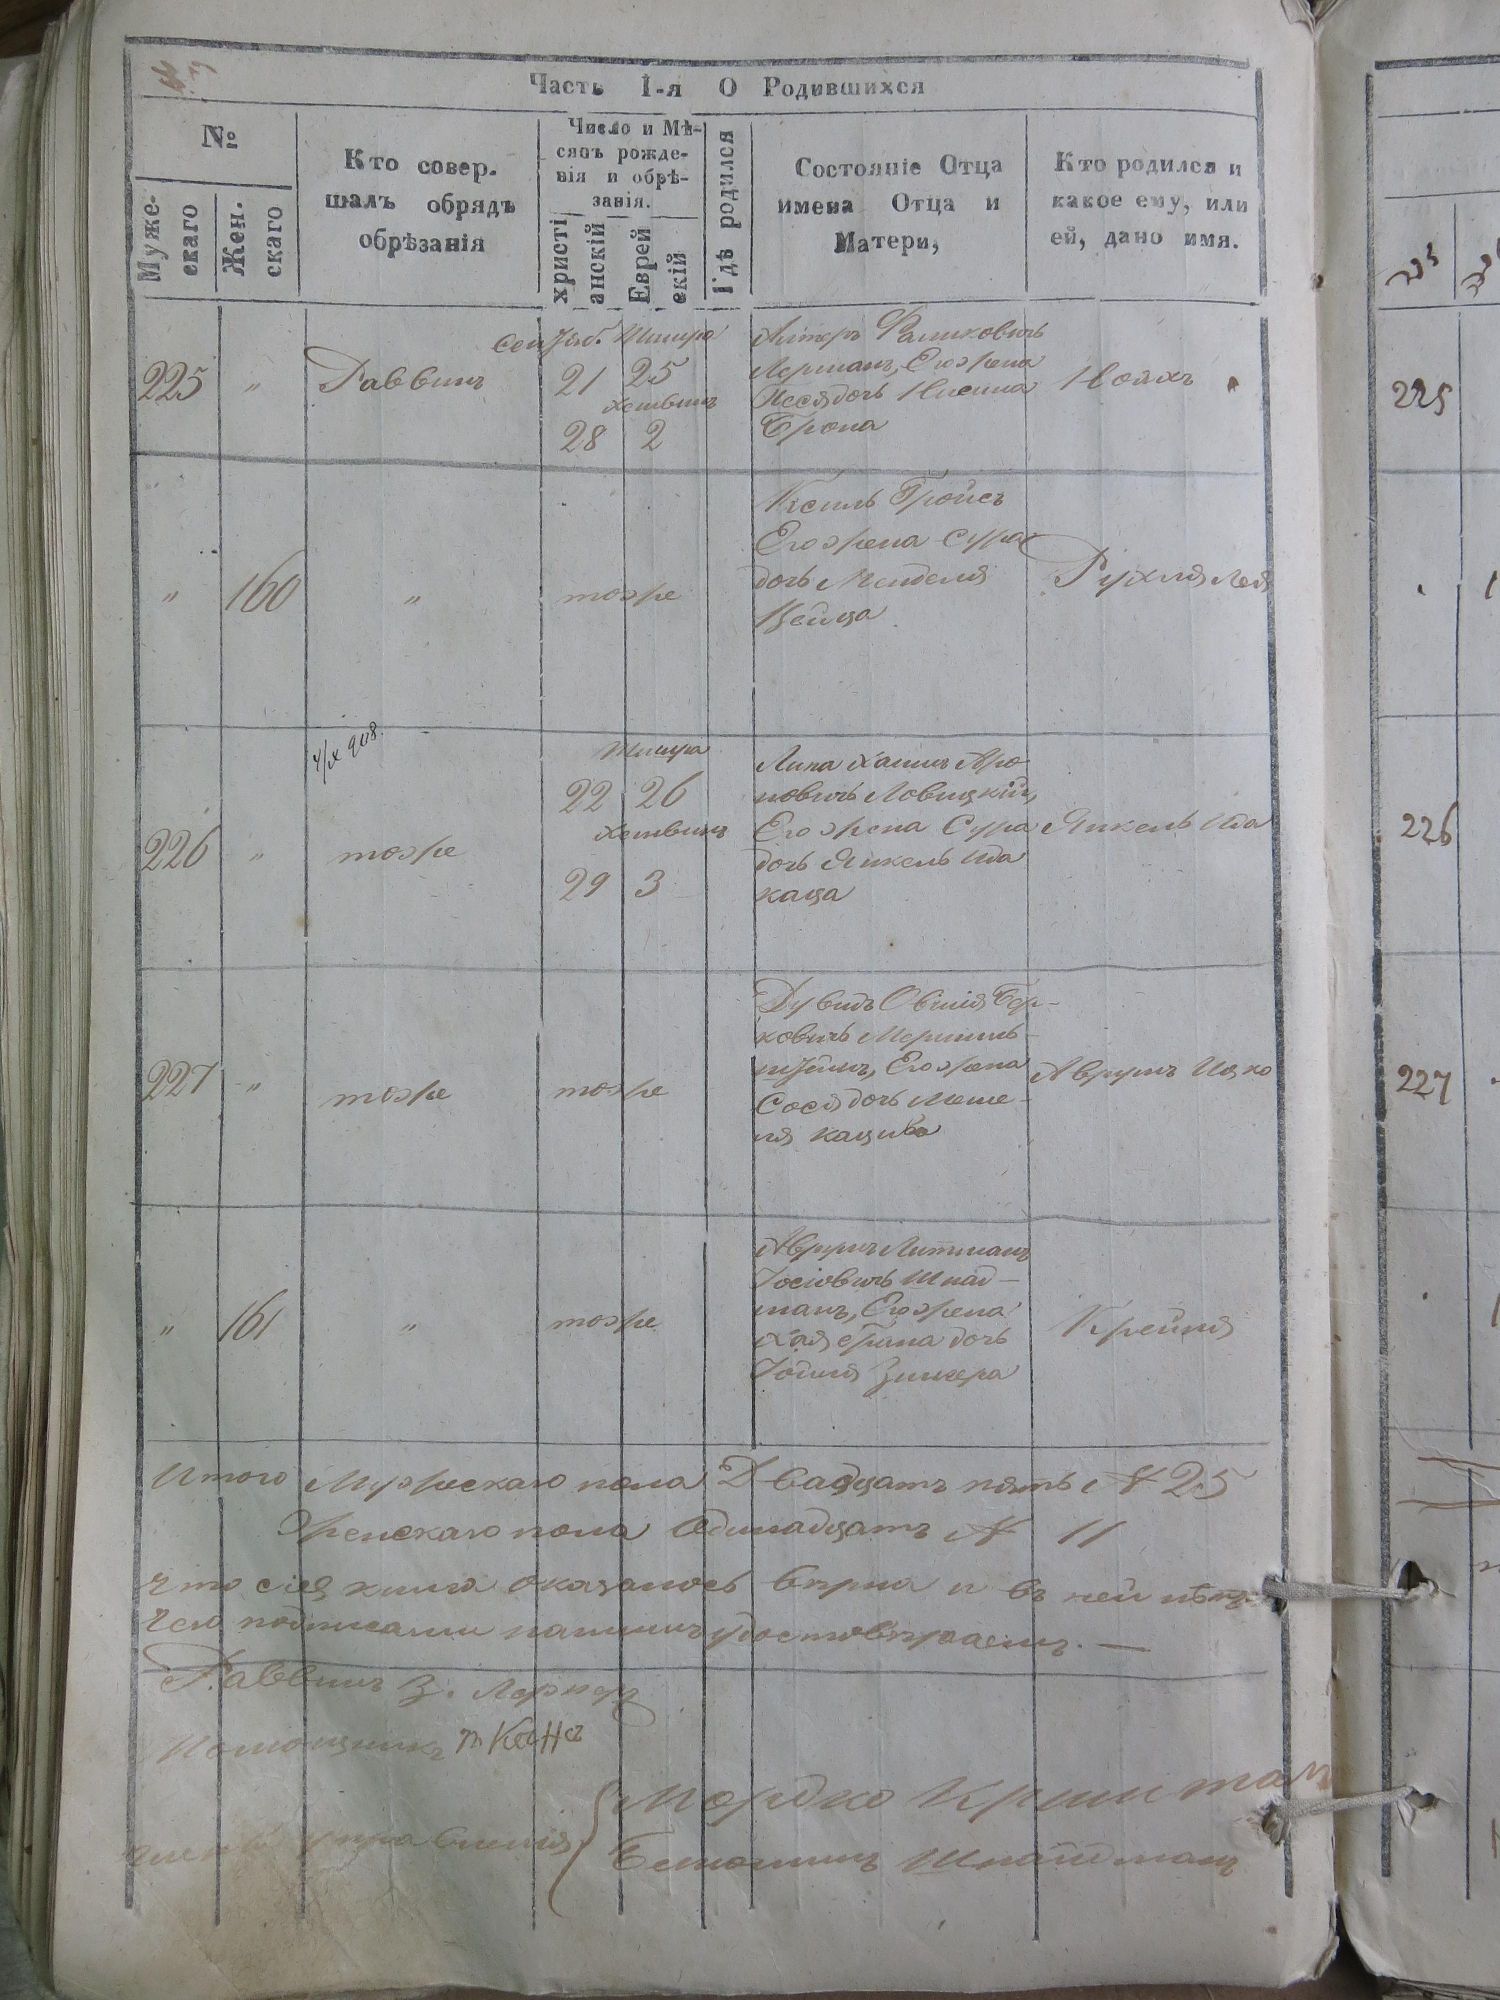 Часть I-я О Родившихся
№
Мужескаго
Женскаго
Кто совер-
шалъ обрядъ
обрѣзанія
Число и Мѣ-
сяцъ рожде-
нія и обрѣ-
занія.
христіанскій
Еврейскій
Гдѣ родился
Состояніе Отца
имена Отца и
Матери,
Кто родился и
какое ему, или
ей, дано имя.
225 " Раввинъ
Сентяб. Тишра
21 25
Хешвинъ
28 2
Альтеръ Фаликовичъ
Лерманъ, Его жена
Песя дочь Нисина
Брона
Нояхъ
225
" 160 " тоже
Ксиль Гройсъ
Его жена Сура
дочь Менделя
Цейца
Рухля Лея
4/X 908.
226 " тоже
Тишра
22 26
Хешвинъ
29 3
Липа Хаимъ Аро-
новичъ Ловицкій,
Его жена Сура
дочь Янкель Ида
каца
Янкель Ида
226
227 " тоже тоже
Дувидъ Овшія Бер-
ковичъ
Его жена
Сося дочь Меше-
ля
Аврумъ Ицко
227
" 161 " тоже
Аврумъ Литманъ
Іосіовичъ Шнад-
манъ, Его жена
Хая дочь
Іойля Зингера
Крейня
Итого Мужескаго пола Двадцать пять № 25
Женскаго пола Одинадцать № 11
Что сія книга оказалось вѣрна и въ ней
чего подписами нашими удостовѣряемъ. —
Раввинъ З. Лернеръ
Помощникъ
члены управленія
Мордко
Шнайдманъ